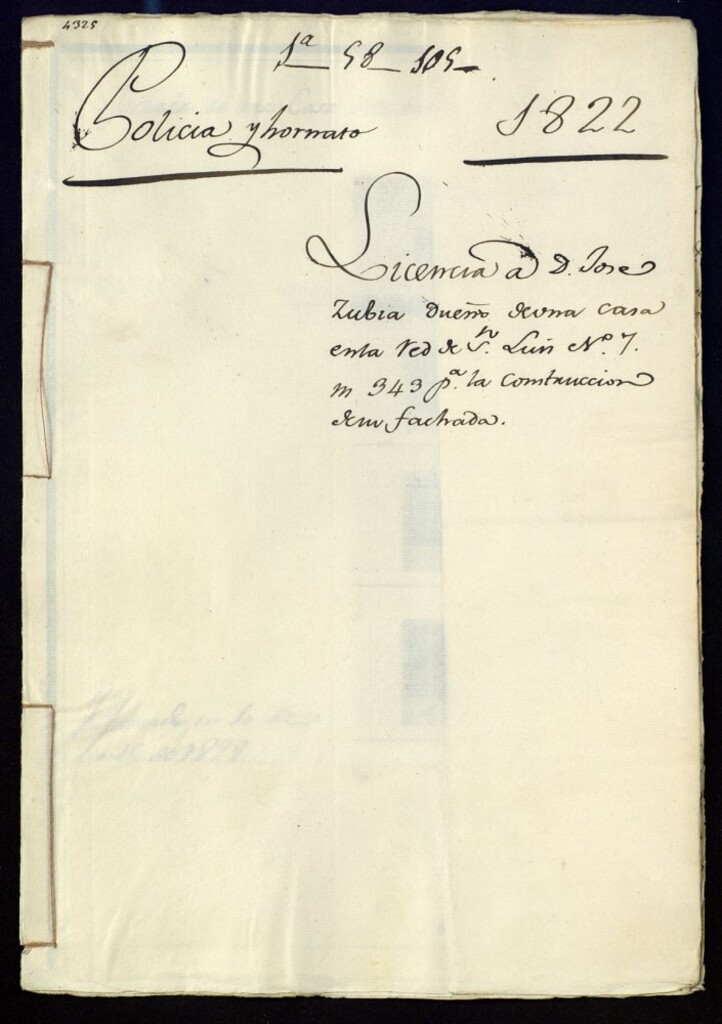 4325
1ª 58 105
Policia y hornato
1822
Licencia a D. Jose
Zubia dueño de una casa
en la Red de Sn. Luis Nº. 7.
m 343 pª. la Construccion
de su fachada.